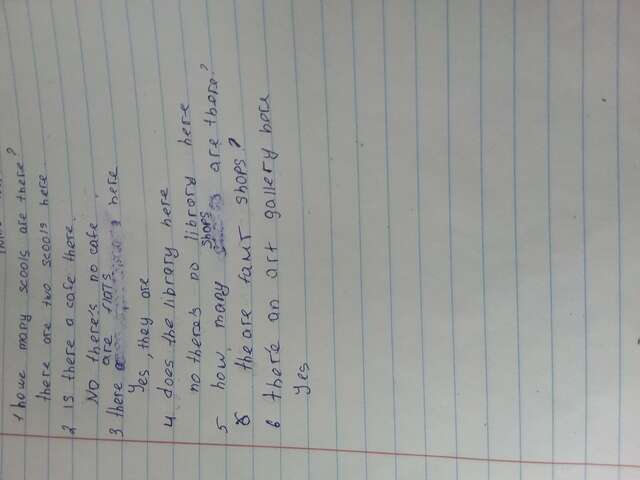 1 howe many scools are there?
there are two scools here
2 is there a cafe there.
No there's no cafe
3 there are flats here
Yes, they are
4 does the library here
no there's no library here
5 how many shops are there?
the are shops?
6 there an art gallery here
Yes